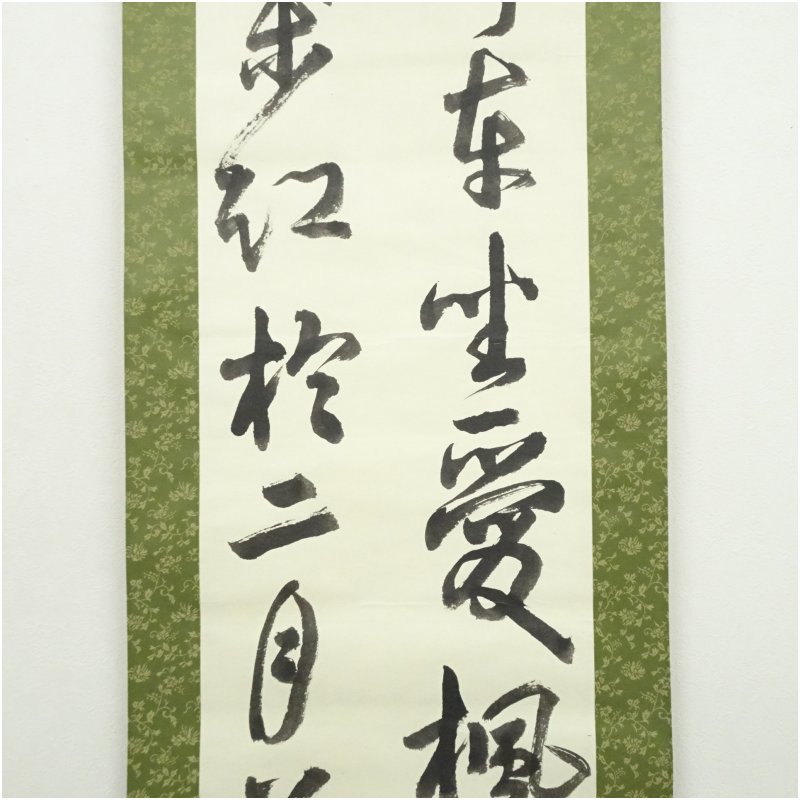 車坐愛楓
葉紅於二月